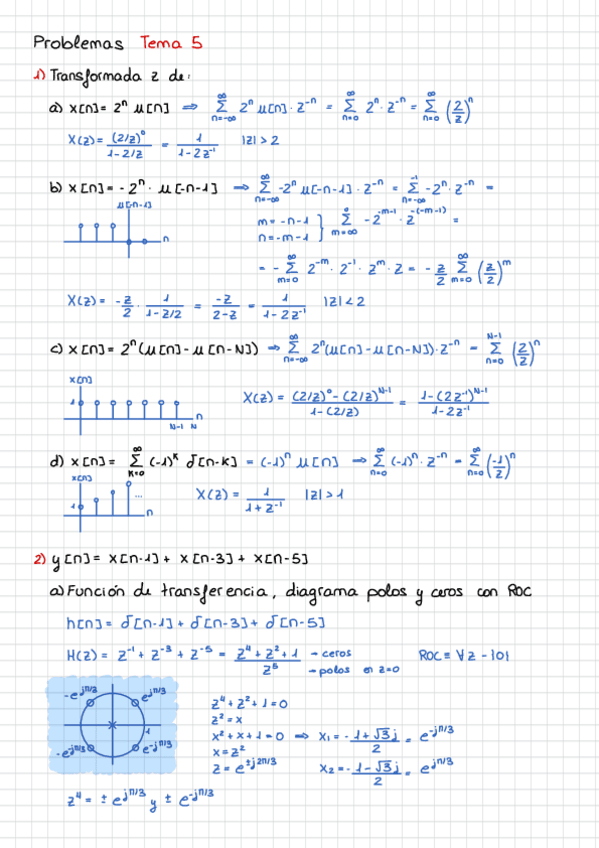 Problemas Tema 5
1) Transformada z de:
a) x[n] = 2ⁿ μ[n] ⇒ Σ_{n=-∞}^{∞} 2ⁿ μ[n]·z⁻ⁿ = Σ_{n=0}^{∞} 2ⁿ·z⁻ⁿ = Σ_{n=0}^{∞} (2/z)ⁿ
X(z) = (2/z)⁰/(1-2/z) = 1/(1-2z⁻¹) |z|>2
b) x[n] = -2ⁿ · μ[-n-1] ⇒ Σ_{n=-∞}^{∞} -2ⁿ μ[-n-1]·z⁻ⁿ = Σ_{n=-∞}^{-1} -2ⁿ·z⁻ⁿ =
μ[-n-1]
n
m = -n-1
n = -m-1 } Σ_{m=∞}^{0} -2^{-m-1}·z^{-(-m-1)} =
= - Σ_{m=0}^{∞} 2^{-m}·2⁻¹·z^m·z = - z/2 Σ_{m=0}^{∞} (z/2)^m
X(z) = -z/2 · 1/(1-z/2) = -z/(2-z) = 1/(1-2z⁻¹) |z|<2
c) x[n] = 2ⁿ(μ[n]-μ[n-N]) ⇒ Σ_{n=-∞}^{∞} 2ⁿ(μ[n]-μ[n-N])·z⁻ⁿ = Σ_{n=0}^{N-1} (2/z)ⁿ
x[n]
1
n
N-1 N
X(z) = ((2/z)⁰-(2/z)^{N-1})/(1-(2/z)) = (1-(2z⁻¹)^{N-1})/(1-2z⁻¹)
d) x[n] = Σ_{k=0}^{∞} (-1)^k δ[n-k] = (-1)ⁿ μ[n] ⇒ Σ_{n=0}^{∞} (-1)ⁿ·z⁻ⁿ = Σ_{n=0}^{∞} (-1/z)ⁿ
x[n]
1
...
n
X(z) = 1/(1+z⁻¹) |z|>1
2) y[n] = x[n-1] + x[n-3] + x[n-5]
a) Función de transferencia, diagrama polos y ceros con ROC
h[n] = δ[n-1] + δ[n-3] + δ[n-5]
H(z) = z⁻¹ + z⁻³ + z⁻⁵ = (z⁴+z²+1)/z⁵ → ceros → polos en z=0 ROC ≡ ∀z - {0}
-e^{jπ/3} e^{jπ/3}
1
-e^{jπ/3} e^{-jπ/3}
z⁴+z²+1=0
z²=x
x²+x+1=0 ⇒ x₁ = -(1+√3j)/2 = e^{-jπ/3}
x=z²
z = e^{±j2π/3} x₂ = -(1-√3j)/2 = e^{jπ/3}
z⁴ = ± e^{jπ/3} y ± e^{-jπ/3}